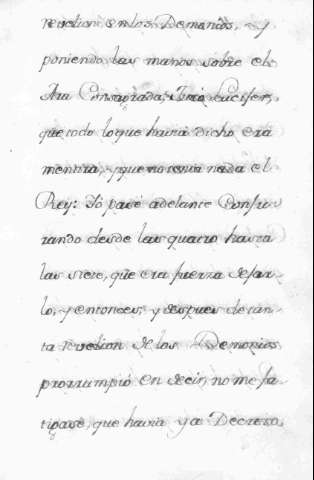 rebelion en los Demonios, y
poniendo las manos sobre el
Ara Consagrada, Juró Lucifer,
que todo lo que havia dicho era
mentira, y que no tenia nada el
Rey: Yo pasé adelante Conju-
rando desde las quatro hasta
las siete, que era fuerza dejar-
lo, y entonces, y despues de tan-
ta rebelion de los Demonios,
prorrumpió en decir, no me fa-
tigase, que havia ya Decreto,